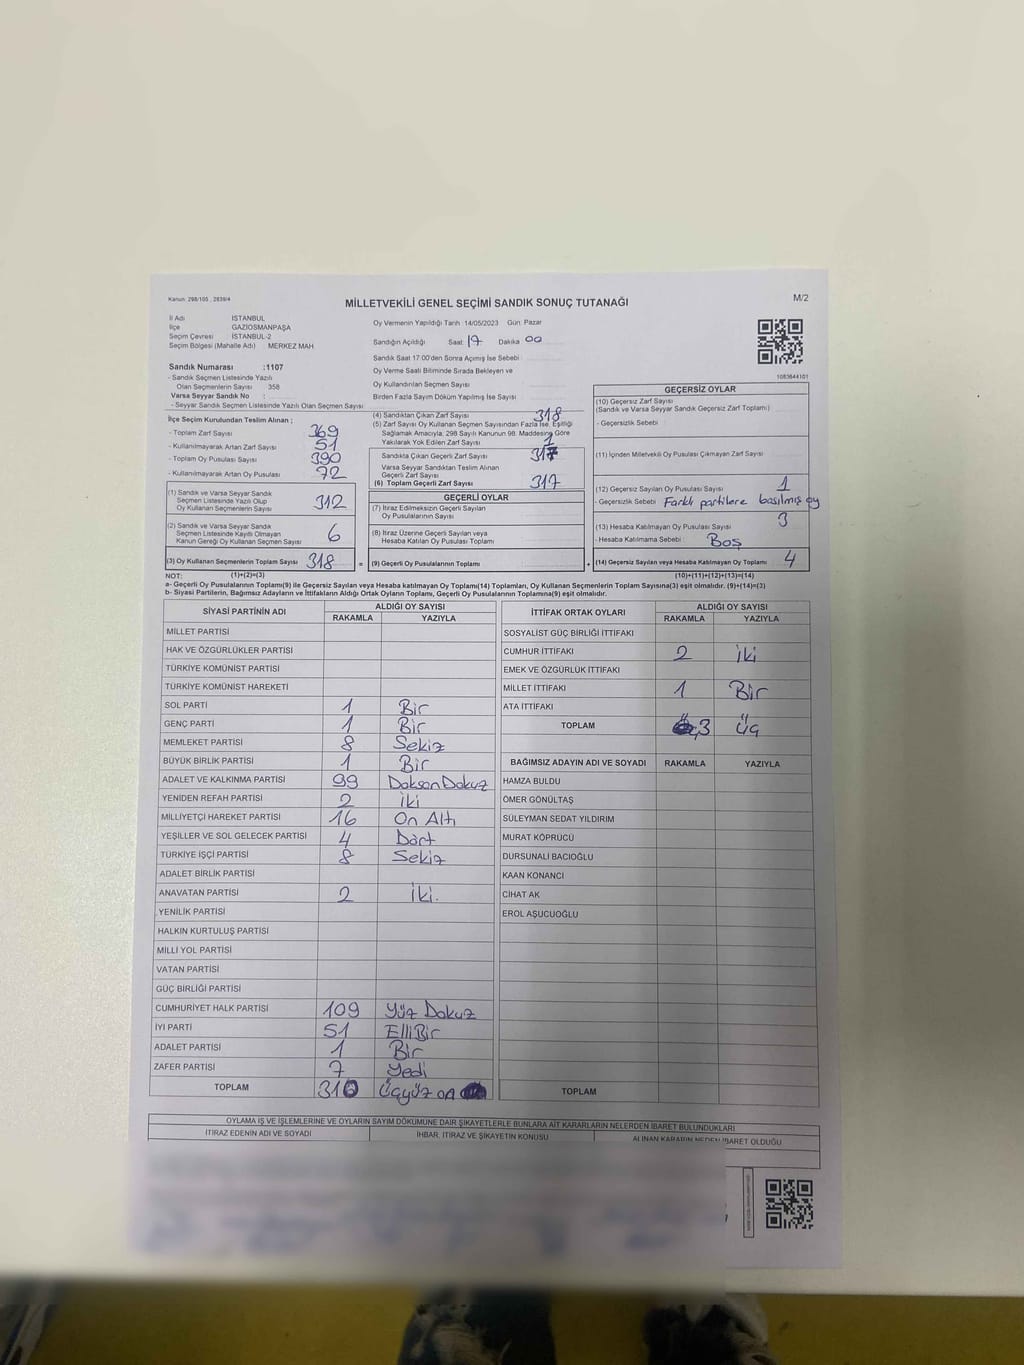 Kanun: 298/105 , 2839/4
MİLLETVEKİLİ GENEL SEÇİMİ SANDIK SONUÇ TUTANAĞI
M/2
İl Adı İSTANBUL
İlçe GAZİOSMANPAŞA
Seçim Çevresi İSTANBUL-2
Seçim Bölgesi (Mahalle Adı) MERKEZ MAH.
Sandık Numarası :1107
- Sandık Seçmen Listesinde Yazılı
Olan Seçmenlerin Sayısı 358
Varsa Seyyar Sandık No :
- Seyyar Sandık Seçmen Listesinde Yazılı Olan Seçmen Sayısı
İlçe Seçim Kurulundan Teslim Alınan ;
- Toplam Zarf Sayısı 369
- Kullanılmayarak Artan Zarf Sayısı 51
- Toplam Oy Pusulası Sayısı 390
- Kullanılmayarak Artan Oy Pusulası 72
(1) Sandık ve Varsa Seyyar Sandık
Seçmen Listesinde Yazılı Olup
Oy Kullanan Seçmenlerin Sayısı 312
(2) Sandık ve Varsa Seyyar Sandık
Seçmen Listesinde Kayıtlı Olmayan
Kanun Gereği Oy Kullanan Seçmen Sayısı 6
(3) Oy Kullanan Seçmenlerin Toplam Sayısı 318
Oy Vermenin Yapıldığı Tarih :14/05/2023 Gün: Pazar
Sandığın Açıldığı Saat: 17 Dakika 00
Sandık Saat 17:00'den Sonra Açımış İse Sebebi
Oy Verme Saati Bitiminde Sırada Bekleyen ve
Oy Kullandırılan Seçmen Sayısı
Birden Fazla Sayım Döküm Yapılmış İse Sayısı
(4) Sandıktan Çıkan Zarf Sayısı 318
(5) Zarf Sayısı Oy Kullanan Seçmen Sayısından Fazla İse, Eşitliği
Sağlamak Amacıyla, 298 Sayılı Kanunun 98. Maddesine Göre
Yakılarak Yok Edilen Zarf Sayısı 1
Sandıkta Çıkan Geçerli Zarf Sayısı 317
Varsa Seyyar Sandıktan Teslim Alınan
Geçerli Zarf Sayısı
(6) Toplam Geçerli Zarf Sayısı 317
GEÇERLİ OYLAR
(7) İtiraz Edilmeksizin Geçerli Sayılan
Oy Pusulalarının Sayısı
(8) İtiraz Üzerine Geçerli Sayılan veya
Hesaba Katılan Oy Pusulası Toplamı
= (9) Geçerli Oy Pusulalarının Toplamı +
1083644101
GEÇERSİZ OYLAR
(10) Geçersiz Zarf Sayısı
(Sandık ve Varsa Seyyar Sandık Geçersiz Zarf Toplamı)
- Geçersizlik Sebebi
(11) İçinden Milletvekili Oy Pusulası Çıkmayan Zarf Sayısı
(12) Geçersiz Sayılan Oy Pusulası Sayısı 1
- Geçersizlik Sebebi Farklı partilere basılmış oy
(13) Hesaba Katılmayan Oy Pusulası Sayısı 3
- Hesaba Katılmama Sebebi : Boş
(14) Geçersiz Sayılan veya Hesaba Katılmayan Oy Toplamı 4
NOT: (1)+(2)=(3) (10)+(11)+(12)+(13)=(14)
a- Geçerli Oy Pusulalarının Toplamı(9) ile Geçersiz Sayılan veya Hesaba katılmayan Oy Toplamı(14) Toplamları, Oy Kullanan Seçmenlerin Toplam Sayısına(3) eşit olmalıdır. (9)+(14)=(3)
b- Siyasi Partilerin, Bağımsız Adayların ve İttifakların Aldığı Ortak Oyların Toplamı, Geçerli Oy Pusulalarının Toplamına(9) eşit olmalıdır.
SİYASİ PARTİNİN ADI ALDIĞI OY SAYISI
RAKAMLA YAZIYLA
MİLLET PARTİSİ
HAK VE ÖZGÜRLÜKLER PARTİSİ
TÜRKİYE KOMÜNİST PARTİSİ
TÜRKİYE KOMÜNİST HAREKETİ
SOL PARTİ 1 Bir
GENÇ PARTİ 1 Bir
MEMLEKET PARTİSİ 8 Sekiz
BÜYÜK BİRLİK PARTİSİ 1 Bir
ADALET VE KALKINMA PARTİSİ 99 Doksan Dokuz
YENİDEN REFAH PARTİSİ 2 iki
MİLLİYETÇİ HAREKET PARTİSİ 16 On Altı
YEŞİLLER VE SOL GELECEK PARTİSİ 4 Dört
TÜRKİYE İŞÇİ PARTİSİ 8 Sekiz
ADALET BİRLİK PARTİSİ
ANAVATAN PARTİSİ 2 İki.
YENİLİK PARTİSİ
HALKIN KURTULUŞ PARTİSİ
MİLLİ YOL PARTİSİ
VATAN PARTİSİ
GÜÇ BİRLİĞİ PARTİSİ
CUMHURİYET HALK PARTİSİ 109 Yüz Dokuz
İYİ PARTİ 51 Elli Bir
ADALET PARTİSİ 1 Bir
ZAFER PARTİSİ 7 Yedi
TOPLAM 310 Üçyüz on
İTTİFAK ORTAK OYLARI ALDIĞI OY SAYISI
RAKAMLA YAZIYLA
SOSYALİST GÜÇ BİRLİĞİ İTTİFAKI
CUMHUR İTTİFAKI 2 iki
EMEK VE ÖZGÜRLÜK İTTİFAKI
MİLLET İTTİFAKI 1 Bir
ATA İTTİFAKI
TOPLAM 3 Üç
BAĞIMSIZ ADAYIN ADI VE SOYADI RAKAMLA YAZIYLA
HAMZA BULDU
ÖMER GÖNÜLTAŞ
SÜLEYMAN SEDAT YILDIRIM
MURAT KÖPRÜCÜ
DURSUNALİ BACIOĞLU
KAAN KONANCI
CİHAT AK
EROL AŞUCUOĞLU
TOPLAM
OYLAMA İŞ VE İŞLEMLERİNE VE OYLARIN SAYIM DÖKÜMÜNE DAİR ŞİKAYETLERLE BUNLARA AİT KARARLARIN NELERDEN İBARET BULUNDUKLARI
İTİRAZ EDENİN ADI VE SOYADI İHBAR, İTİRAZ VE ŞİKAYETİN KONUSU ALINAN KARARIN NEDEN İBARET OLDUĞU